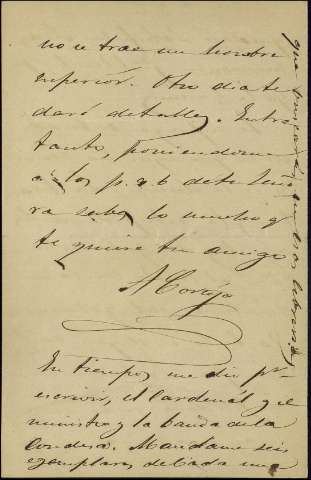 no se trae un hombre
superior. Otro dia te
daré detalles. Entre
tanto, poniendome
á los p. de tu Señó
ra sabes lo mucho q
te quiere tu amigo
A Cortijo
En tiempos me dió pr
escrivir, el Cardenal y el
ministro y la banda de la
Condesa. Mandame seis
ejemplares de cada una